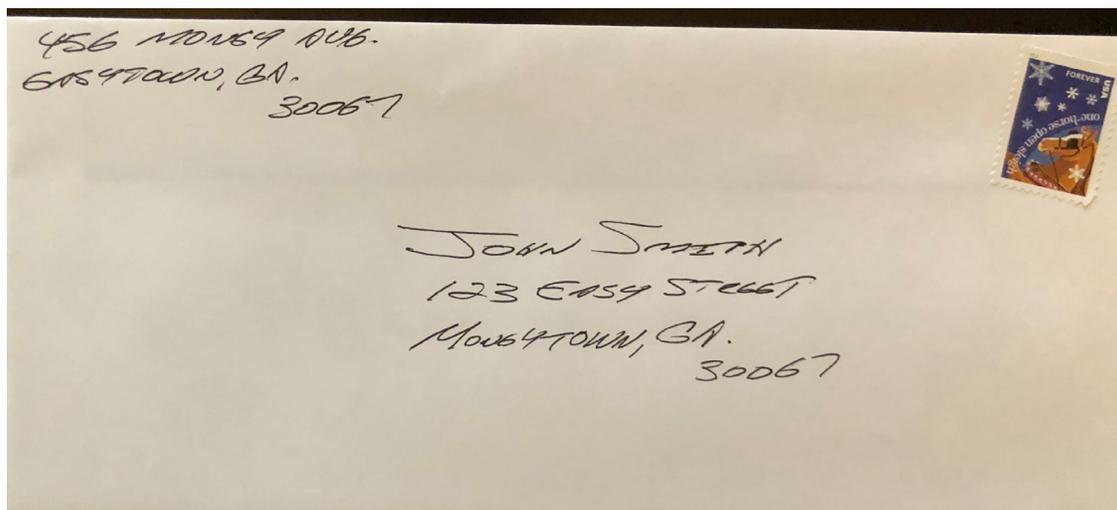 456 MONEY AVE.
EASYTOWN, GA.
30067
FOREVER
USA
one-horse open sleigh
JOHN SMITH
123 EASY STREET
MONEYTOWN, GA.
30067